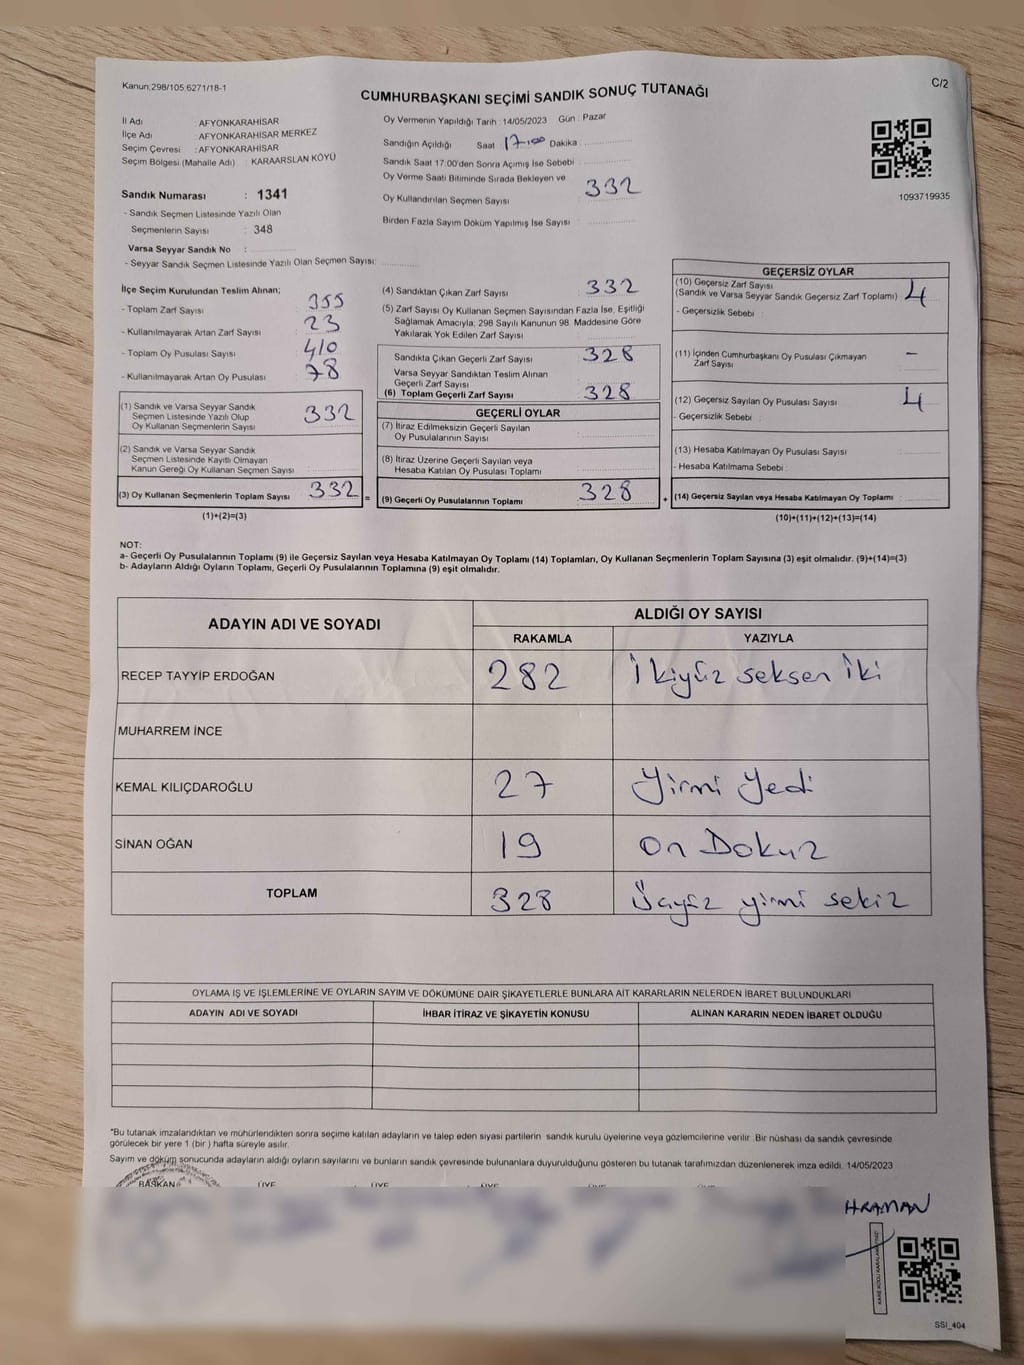 Kanun;298/105,6271/18-1
C/2
CUMHURBAŞKANI SEÇİMİ SANDIK SONUÇ TUTANAĞI
İl Adı : AFYONKARAHİSAR
İlçe Adı : AFYONKARAHİSAR MERKEZ
Seçim Çevresi : AFYONKARAHİSAR
Seçim Bölgesi (Mahalle Adı) : KARAARSLAN KÖYÜ
Sandık Numarası : 1341
- Sandık Seçmen Listesinde Yazılı Olan
Seçmenlerin Sayısı : 348
Varsa Seyyar Sandık No :
- Seyyar Sandık Seçmen Listesinde Yazılı Olan Seçmen Sayısı:
Oy Vermenin Yapıldığı Tarih : 14/05/2023 Gün : Pazar
Sandığın Açıldığı Saat : 17.00 Dakika :
Sandık Saat 17:00'den Sonra Açımış İse Sebebi :
Oy Verme Saati Bitiminde Sırada Bekleyen ve
Oy Kullandırılan Seçmen Sayısı : 332
Birden Fazla Sayım Döküm Yapılmış İse Sayısı :
1093719935
İlçe Seçim Kurulundan Teslim Alınan;
- Toplam Zarf Sayısı : 355
- Kullanılmayarak Artan Zarf Sayısı : 23
- Toplam Oy Pusulası Sayısı : 410
- Kullanılmayarak Artan Oy Pusulası : 78
(1) Sandık ve Varsa Seyyar Sandık
Seçmen Listesinde Yazılı Olup
Oy Kullanan Seçmenlerin Sayısı : 332
(2) Sandık ve Varsa Seyyar Sandık
Seçmen Listesinde Kayıtlı Olmayan
Kanun Gereği Oy Kullanan Seçmen Sayısı :
(3) Oy Kullanan Seçmenlerin Toplam Sayısı : 332 =
(1)+(2)=(3)
(4) Sandıktan Çıkan Zarf Sayısı : 332
(5) Zarf Sayısı Oy Kullanan Seçmen Sayısından Fazla İse, Eşitliği
Sağlamak Amacıyla; 298 Sayılı Kanunun 98. Maddesine Göre
Yakılarak Yok Edilen Zarf Sayısı :
Sandıkta Çıkan Geçerli Zarf Sayısı : 328
Varsa Seyyar Sandıktan Teslim Alınan
Geçerli Zarf Sayısı :
(6) Toplam Geçerli Zarf Sayısı : 328
GEÇERLİ OYLAR
(7) İtiraz Edilmeksizin Geçerli Sayılan
Oy Pusulalarının Sayısı :
(8) İtiraz Üzerine Geçerli Sayılan veya
Hesaba Katılan Oy Pusulası Toplamı :
(9) Geçerli Oy Pusulalarının Toplamı : 328 +
GEÇERSİZ OYLAR
(10) Geçersiz Zarf Sayısı
(Sandık ve Varsa Seyyar Sandık Geçersiz Zarf Toplamı) : 4
- Geçersizlik Sebebi :
(11) İçinden Cumhurbaşkanı Oy Pusulası Çıkmayan
Zarf Sayısı : -
(12) Geçersiz Sayılan Oy Pusulası Sayısı : 4
- Geçersizlik Sebebi :
(13) Hesaba Katılmayan Oy Pusulası Sayısı :
- Hesaba Katılmama Sebebi :
(14) Geçersiz Sayılan veya Hesaba Katılmayan Oy Toplamı :
(10)+(11)+(12)+(13)=(14)
NOT:
a- Geçerli Oy Pusulalarının Toplamı (9) ile Geçersiz Sayılan veya Hesaba Katılmayan Oy Toplamı (14) Toplamları, Oy Kullanan Seçmenlerin Toplam Sayısına (3) eşit olmalıdır. (9)+(14)=(3)
b- Adayların Aldığı Oyların Toplamı, Geçerli Oy Pusulalarının Toplamına (9) eşit olmalıdır.
ADAYIN ADI VE SOYADI
ALDIĞI OY SAYISI
RAKAMLA YAZIYLA
RECEP TAYYİP ERDOĞAN 282 İkiyüz seksen iki
MUHARREM İNCE
KEMAL KILIÇDAROĞLU 27 Yirmi Yedi
SİNAN OĞAN 19 On Dokuz
TOPLAM 328 Üçyüz yirmi sekiz
OYLAMA İŞ VE İŞLEMLERİNE VE OYLARIN SAYIM VE DÖKÜMÜNE DAİR ŞİKAYETLERLE BUNLARA AİT KARARLARIN NELERDEN İBARET BULUNDUKLARI
ADAYIN ADI VE SOYADI İHBAR İTİRAZ VE ŞİKAYETİN KONUSU ALINAN KARARIN NEDEN İBARET OLDUĞU
"Bu tutanak imzalandıktan ve mühürlendikten sonra seçime katılan adayların ve talep eden siyasi partilerin sandık kurulu üyelerine veya gözlemcilerine verilir. Bir nüshası da sandık çevresinde
görülecek bir yere 1 (bir) hafta süreyle asılır.
Sayım ve döküm sonucunda adayların aldığı oyların sayılarını ve bunların sandık çevresinde bulunanlara duyurulduğunu gösteren bu tutanak tarafımızdan düzenlenerek imza edildi. 14/05/2023
BAŞKAN ÜYE ÜYE ÜYE ÜYE ÜYE
HRAMAN
SSI_404